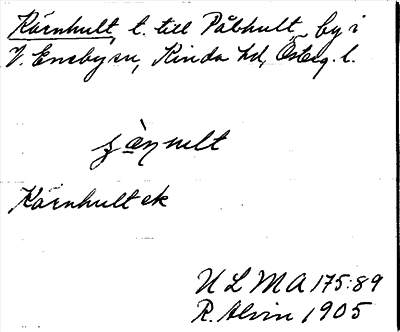 Kärnhult, t. till Påbhult, by i
V. Eneby sn, Kinda hd, Österg. l.
Kärnhult ek
ULMA 175:89
R. Alvin 1905